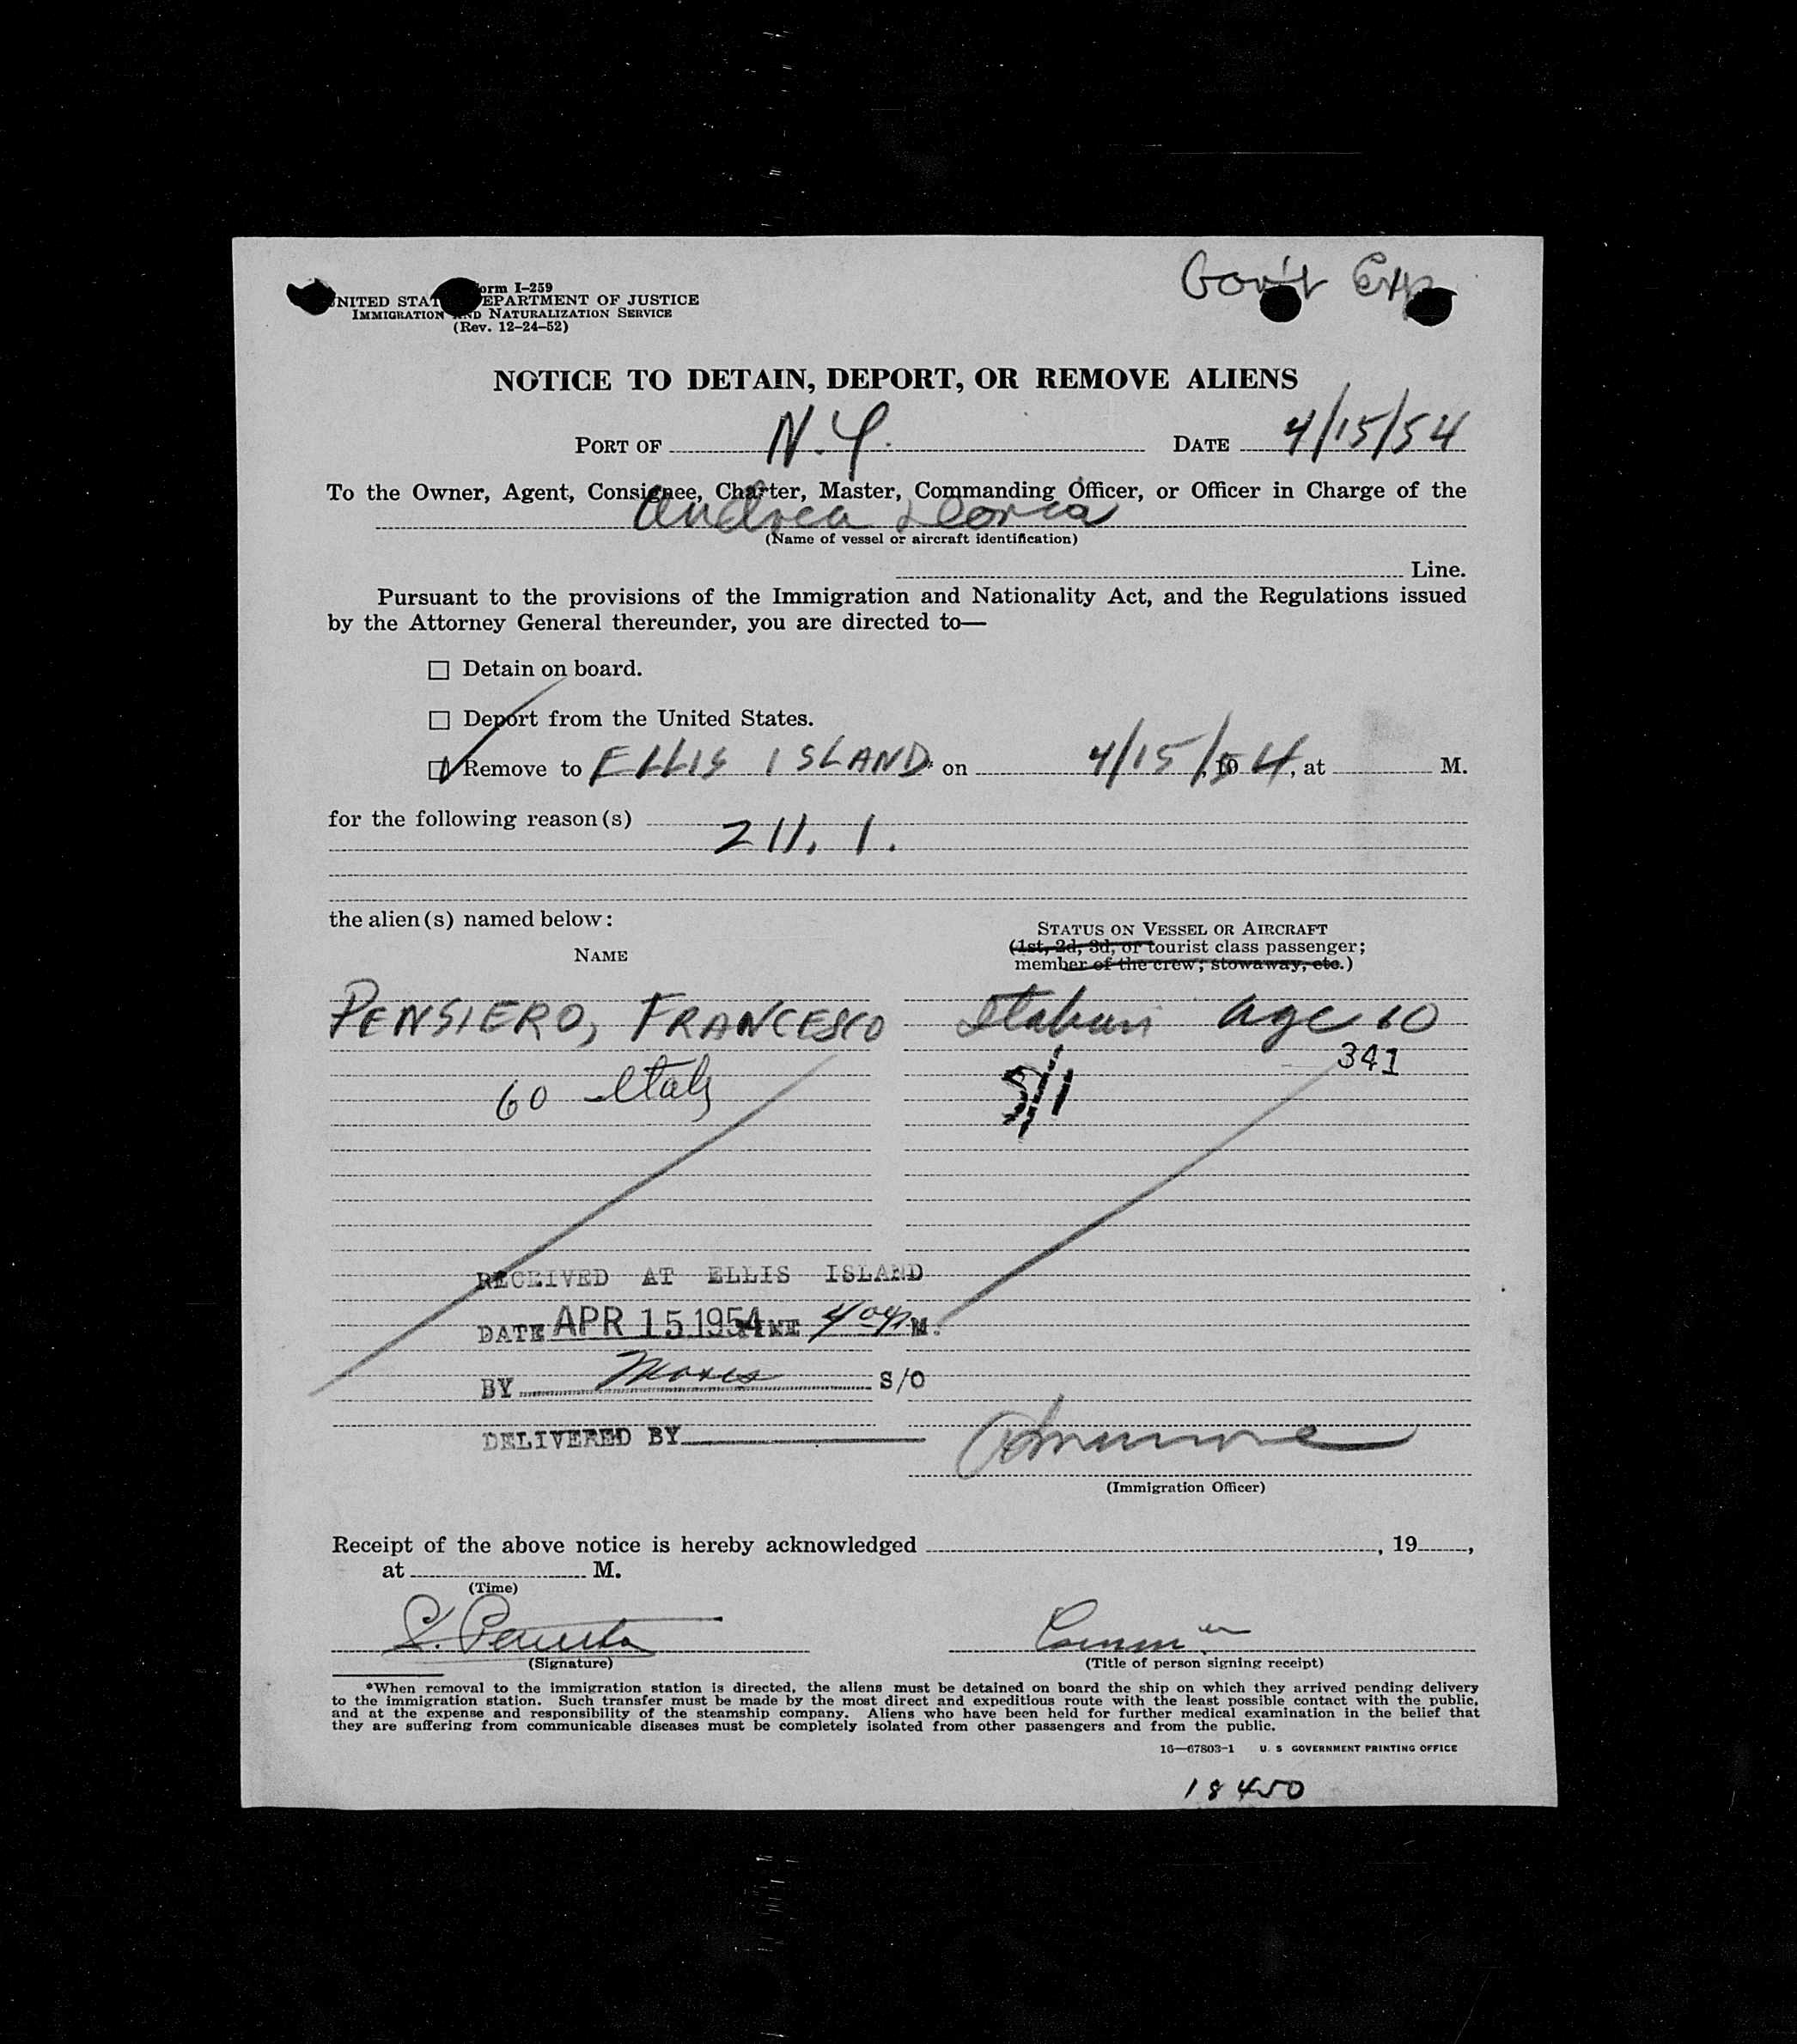 Gov't Exp
Form I-259
UNITED STATES DEPARTMENT OF JUSTICE
IMMIGRATION AND NATURALIZATION SERVICE
(Rev. 12-24-52)
NOTICE TO DETAIN, DEPORT, OR REMOVE ALIENS
PORT OF N.Y. DATE 4/15/54
To the Owner, Agent, Consignee, Charter, Master, Commanding Officer, or Officer in Charge of the
Andrea Doria
(Name of vessel or aircraft identification)
Line.
Pursuant to the provisions of the Immigration and Nationality Act, and the Regulations issued
by the Attorney General thereunder, you are directed to—
☐ Detain on board.
☐ Deport from the United States.
☑ Remove to ELLIS ISLAND* on 4/15/54, at M.
for the following reason(s)
211.1.
the alien(s) named below:
STATUS ON VESSEL OR AIRCRAFT
(1st, 2d, 3d, or tourist class passenger;
NAME
member of the crew; stowaway, etc.)
PENSIERO, FRANCESCO Italian age 60
341
60 Italy S/1
RECEIVED AT ELLIS ISLAND
DATE APR 15 1954 TIME 4 M.
BY S/O
DELIVERED BY
(Immigration Officer)
Receipt of the above notice is hereby acknowledged , 19 ,
at M.
(Time)
(Signature) (Title of person signing receipt)
*When removal to the immigration station is directed, the aliens must be detained on board the ship on which they arrived pending delivery
to the immigration station. Such transfer must be made by the most direct and expeditious route with the least possible contact with the public,
and at the expense and responsibility of the steamship company. Aliens who have been held for further medical examination in the belief that
they are suffering from communicable diseases must be completely isolated from other passengers and from the public.
16—67803-1 U. S GOVERNMENT PRINTING OFFICE
18450